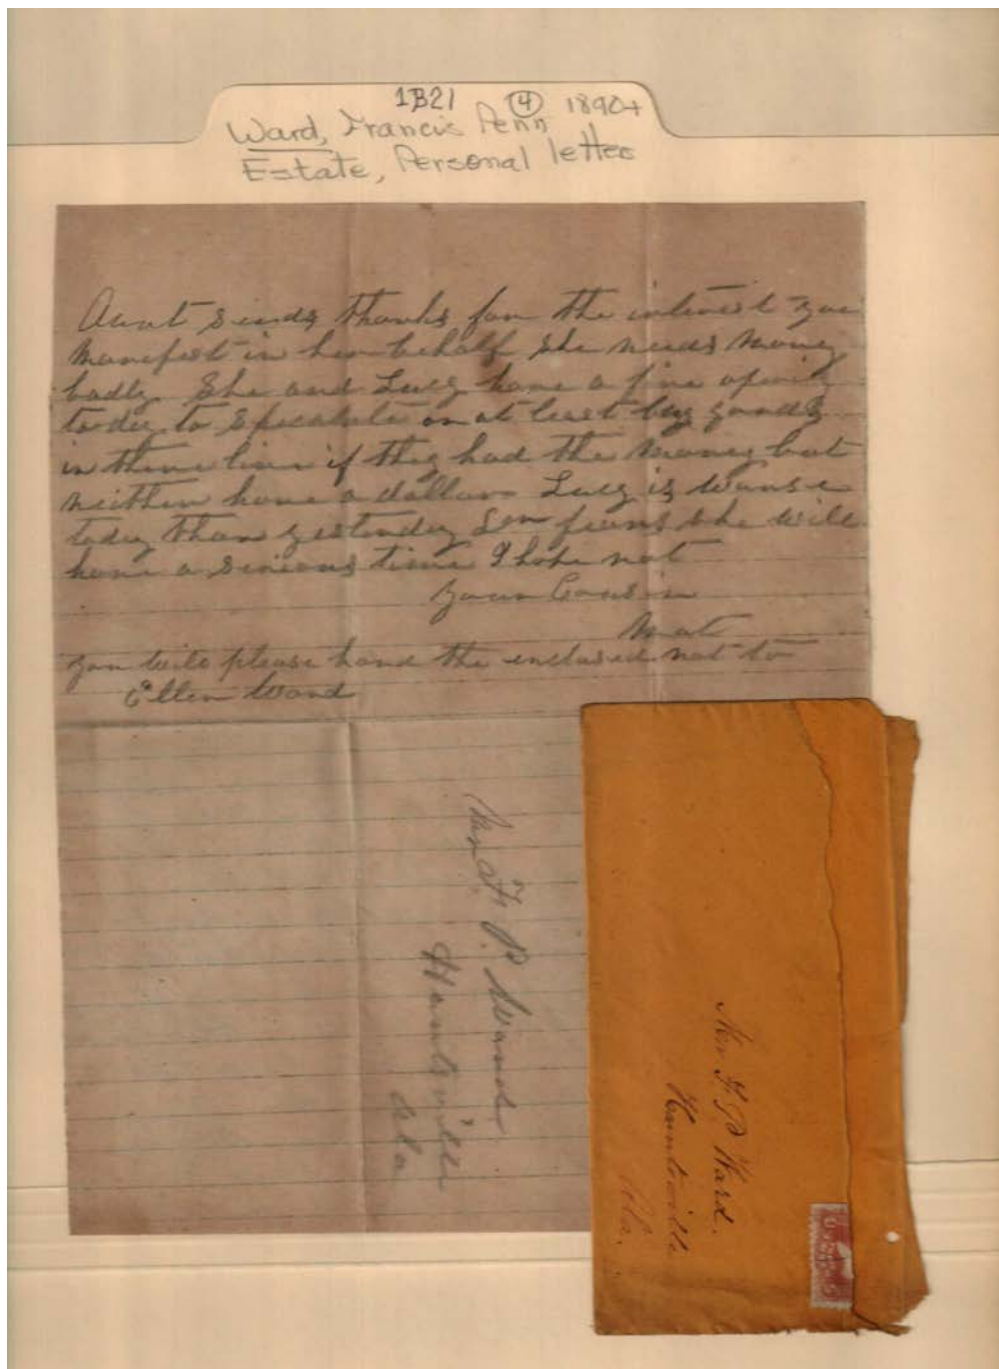 1B21 ④ 1890+
Ward, Francis Penn
Estate, Personal letters
Aunt sends thanks for the interest you
manifest in her behalf she needs money
badly She and Lucy have a fine
today to speculate or at least buy goods
in there line if they had the money but
neither have a dollar Lucy is worse
today than yesterday fears she will
have a serious time I hope not
Your Cousin
Mat
You will please hand the enclosed not to
Ellen Ward
F. P. Ward
Huntsville
Ala
F. P. Ward.
Huntsville
Ala.